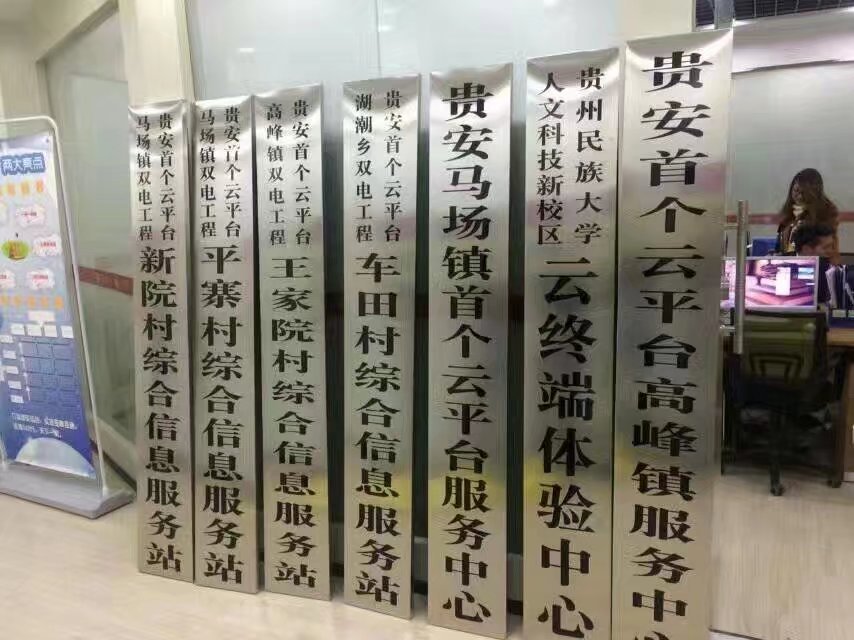 贵安首个云平台
马场镇双电工程
新院村综合信息服务站
贵安首个云平台
马场镇双电工程
平寨村综合信息服务站
贵安首个云平台
高峰镇双电工程
王家院村综合信息服务站
贵安首个云平台
湖潮乡双电工程
车田村综合信息服务站
贵安马场镇首个云平台服务中心
贵州民族大学
人文科技新校区
云终端体验中心
贵安首个云平台高峰镇服务中
两大亮点